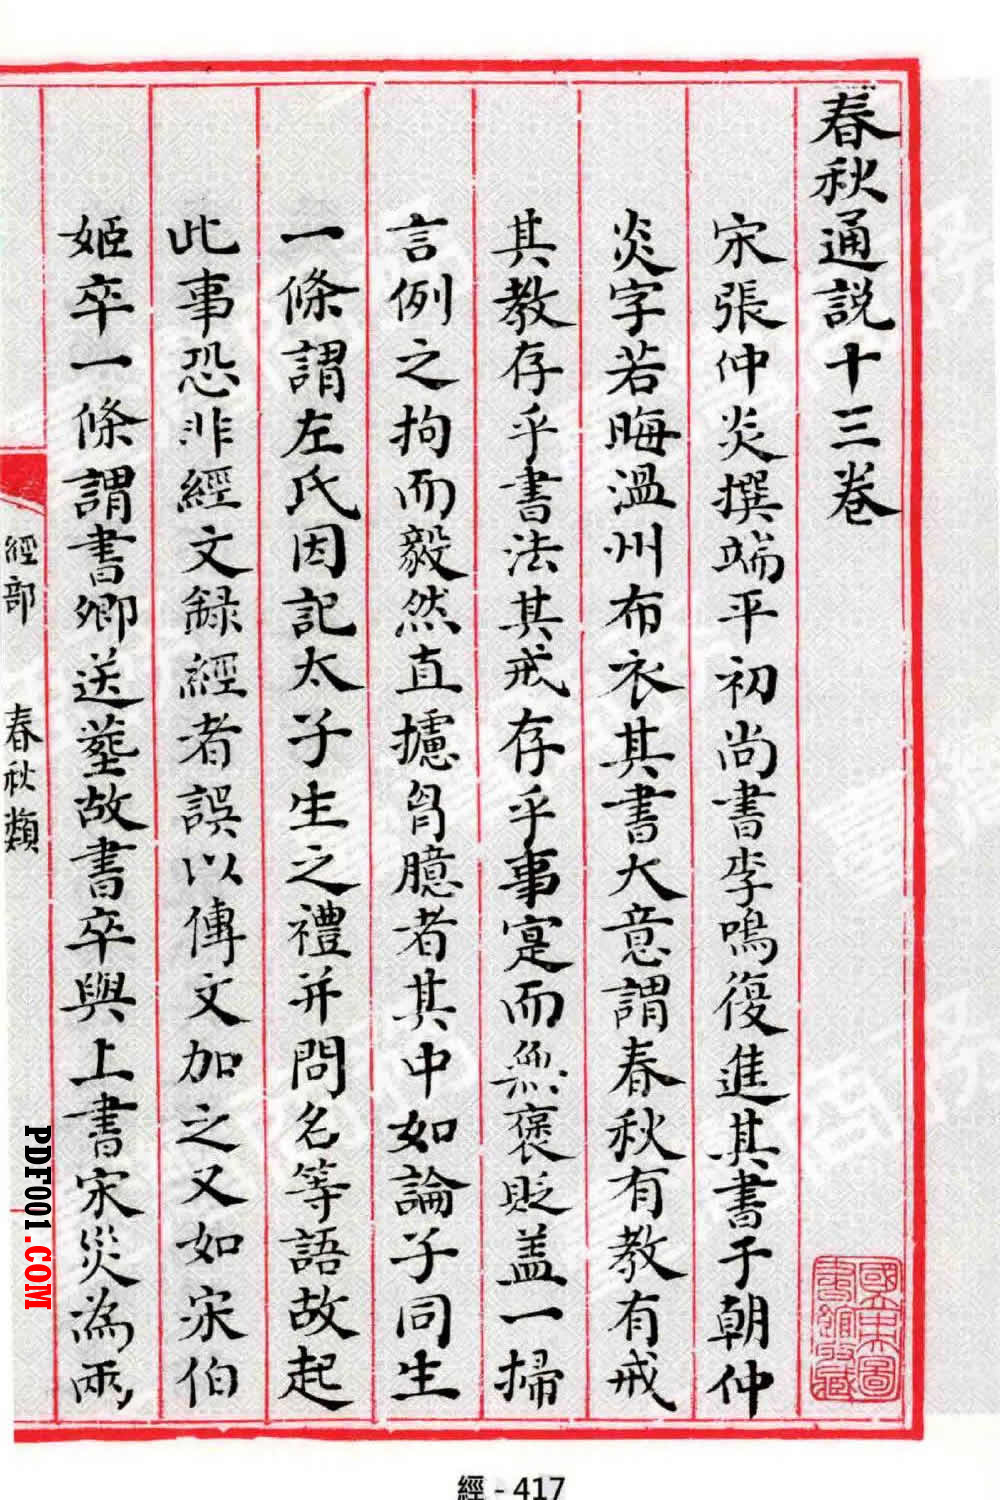 春秋通説十三卷
宋張仲炎撰端平初尚書李鳴復進其書于朝仲
炎字若晦溫州布衣其書大意謂春秋有教有戒
其教存乎書法其戒存乎事寔而無褒貶盖一掃
言例之拘而毅然直攄胷臆者其中如論子同生
一條謂左氏因記太子生之禮并問名等語故起
此事恐非經文録經者誤以傳文加之又如宋伯
姬卒一條謂書卿送塟故書卒與上書宋災為兩
經部
春秋類
國立中央圖
書館收藏
PDF001.COM
經 - 417